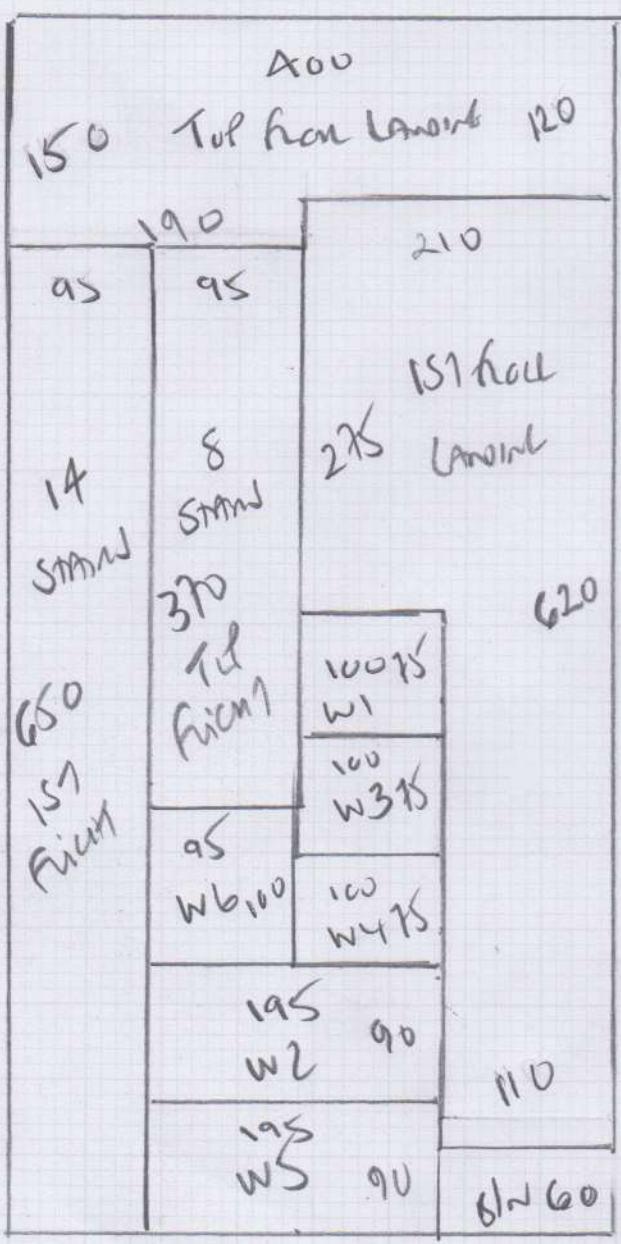 400
150 TOP FLOOR LANDING 120
190
95
95
210
1ST FLOOR
LANDING
275
14
STAIRS
8
STAIRS
370
TOP
FLIGHT
620
650
1ST
FLIGHT
100 75
W1
100
W3 75
95
W6 100
100
W4 75
195
W2 90
110
195
W5 90
BIN 60